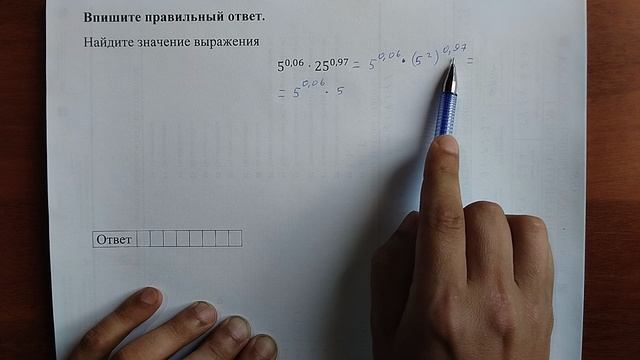 Впишите правильный ответ.
Найдите значение выражения
5^0,06 · 25^0,97 = 5^0,06 · (5^2)^0,97 =
= 5^0,06 · 5
Ответ